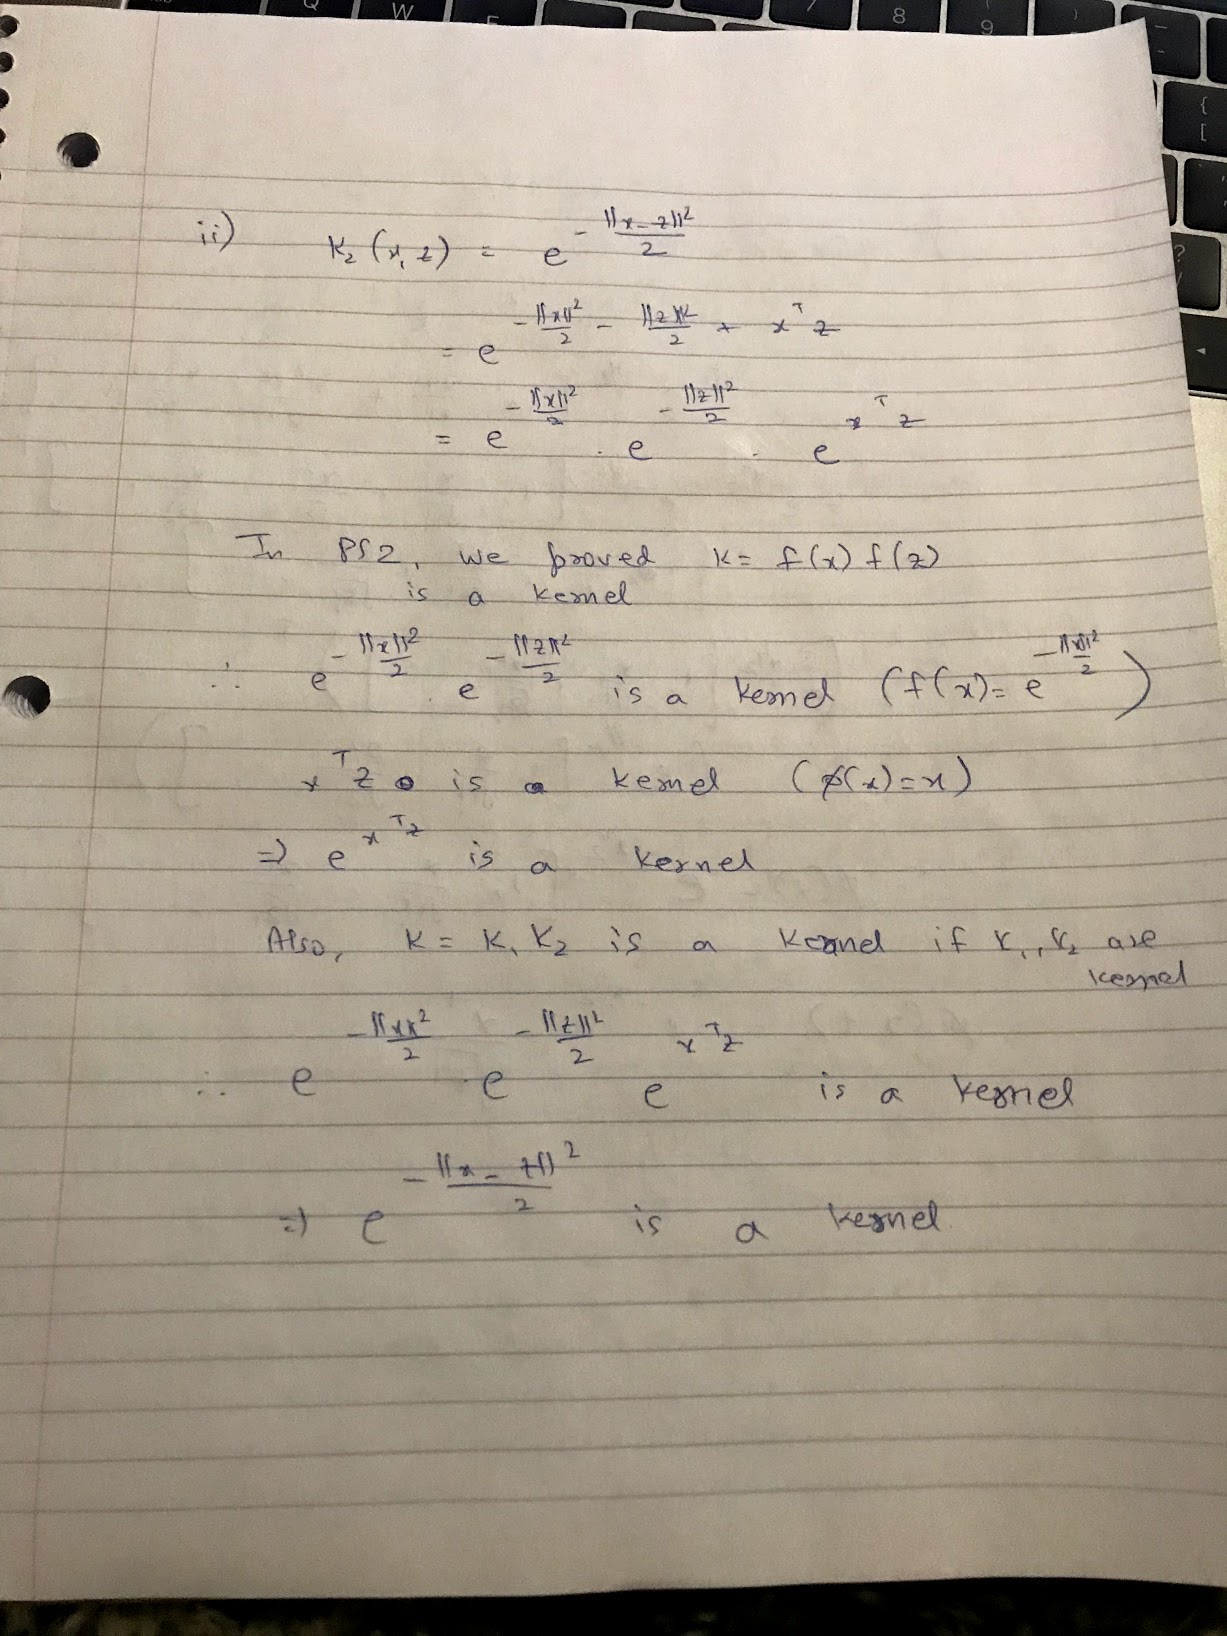 ii) K₂(x, z) = e^{-\frac{||x-z||²}{2}}
= e^{-\frac{||x||²}{2} - \frac{||z||²}{2} + x^T z}
= e^{-\frac{||x||²}{2}} . e^{-\frac{||z||²}{2}} . e^{x^T z}
In PS2, we proved K = f(x) f(z)
is a kernel
∴ e^{-\frac{||x||²}{2}} . e^{-\frac{||z||²}{2}} is a kernel (f(x) = e^{-\frac{||x||²}{2}})
x^T z is a kernel (φ(x) = x)
⇒ e^{x^T z} is a kernel
Also, K = K₁ K₂ is a kernel if K₁, K₂ are
kernel
∴ e^{-\frac{||x||²}{2}} . e^{-\frac{||z||²}{2}} e^{x^T z} is a kernel
⇒ e^{-\frac{||x-z||²}{2}} is a kernel